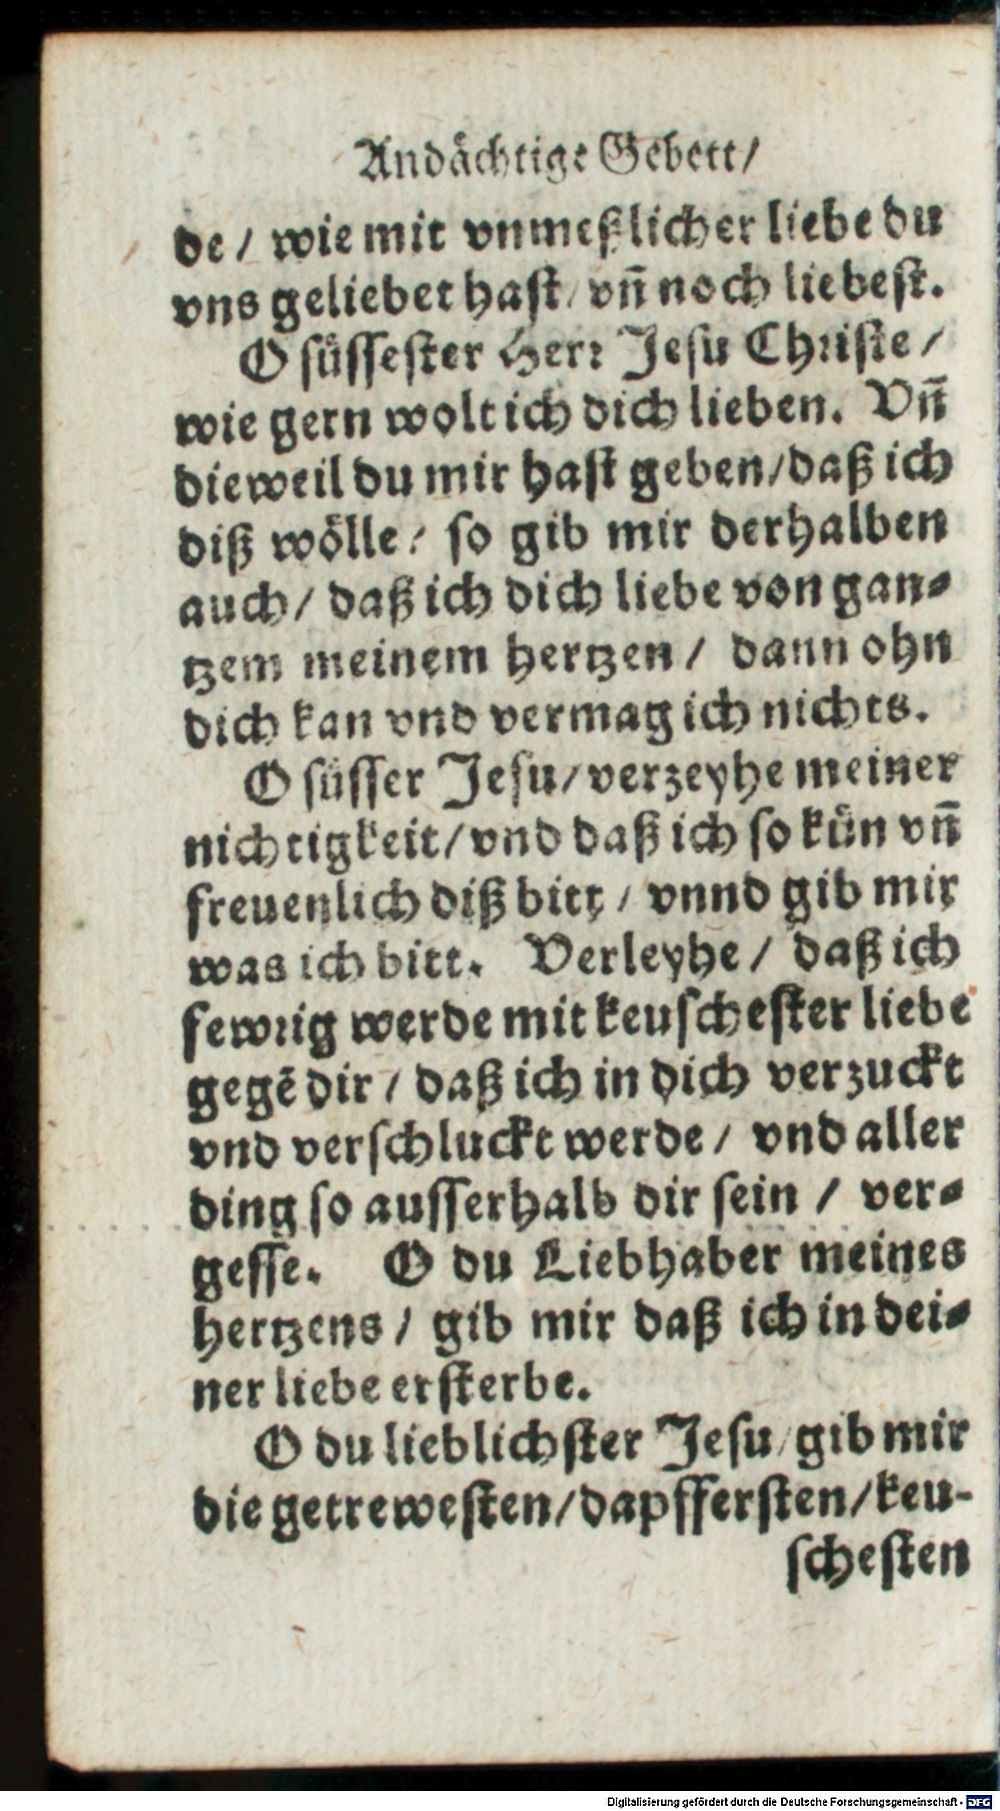 Andächtige Gebett/
de/ wie mit vnmeßlicher liebe du
vns geliebet hast/ vñ noch liebest.
O süssester Herr Jesu Christe/
wie gern wolt ich dich lieben. Vñ
dieweil du mir hast geben/daß ich
diß wölle/ so gib mir derhalben
auch/ daß ich dich liebe von gan-
tzem meinem hertzen/ dann ohn
dich kan vnd vermag ich nichts.
O süsser Jesu/verzeyhe meiner
nichtigkeit/vnd daß ich so kün vñ
freuenlich diß bitt/ vnnd gib mir
was ich bitt. Verleyhe/ daß ich
fewrig werde mit keuschester liebe
gegẽ dir/ daß ich in dich verzuckt
vnd verschluckt werde/ vnd aller
ding so ausserhalb dir sein/ ver-
gesse. O du Liebhaber meines
hertzens/ gib mir daß ich in dei-
ner liebe ersterbe.
O du lieblichster Jesu/gib mir
die getrewesten/dapffersten/keu-
schesten
Digitalisierung gefördert durch die Deutsche Forschungsgemeinschaft - DFG